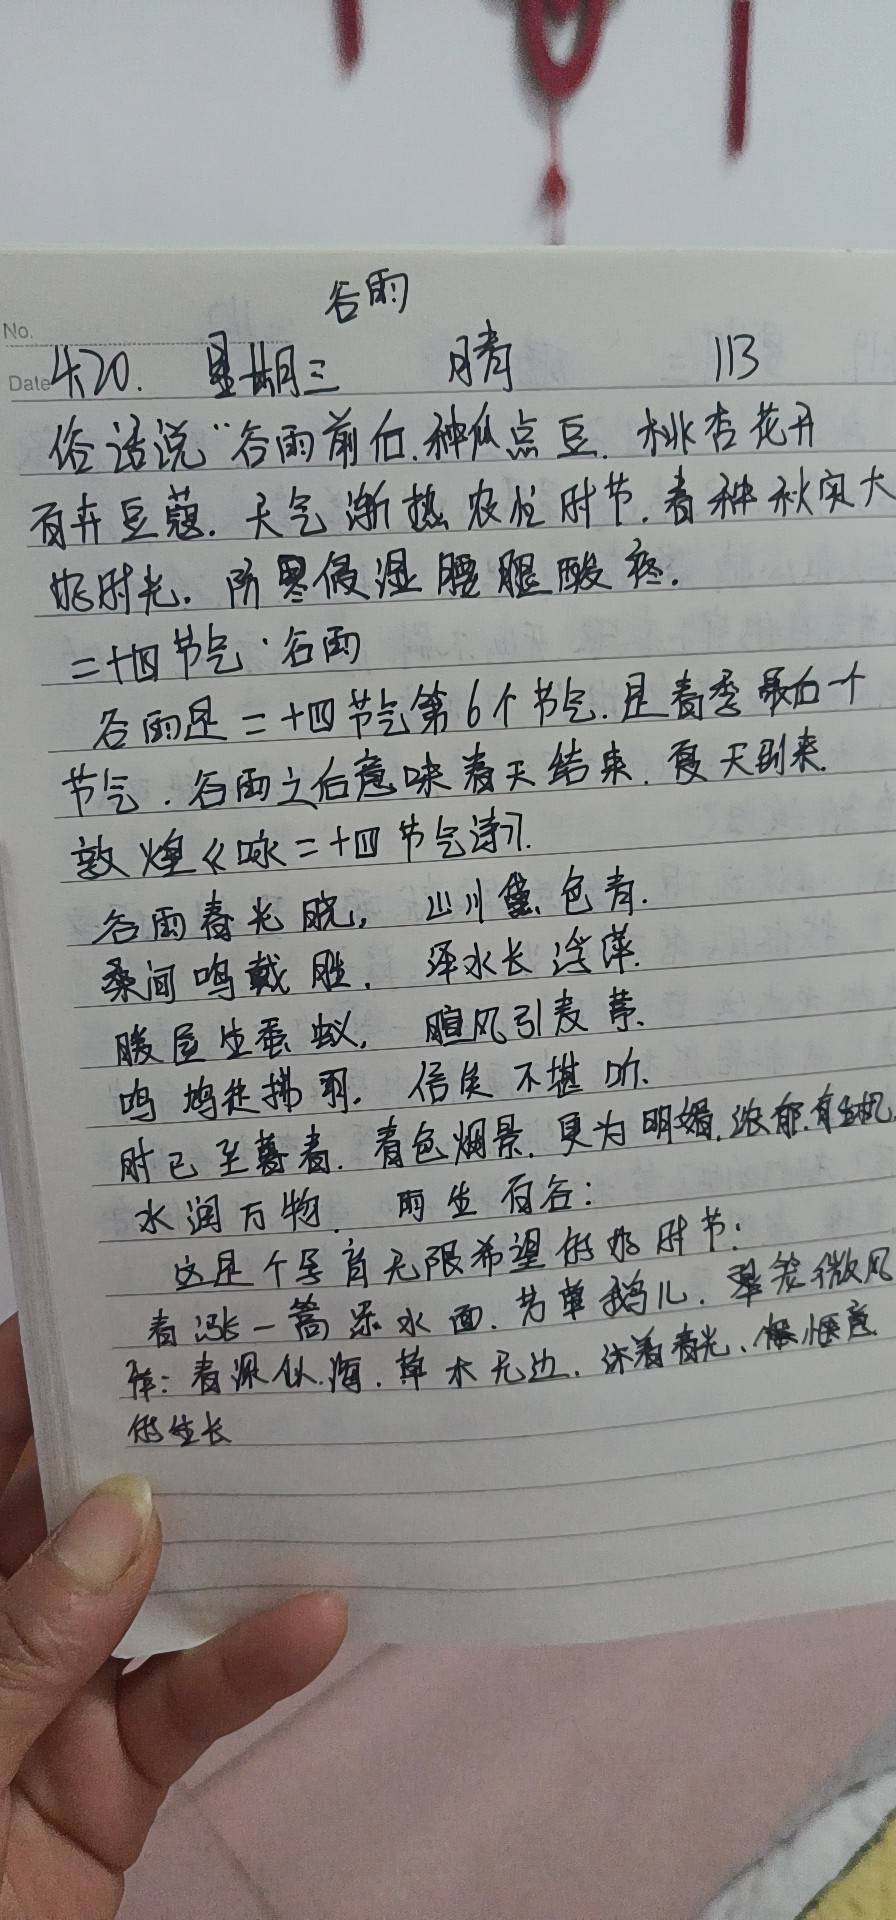 谷雨
No.
Date 4.20. 星期三 晴 113
俗话说"谷雨前后.种瓜点豆. 桃杏花开
百卉豆蔻. 天气渐热农忙时节.春种秋实大
好时光. 防寒侵湿腰腿酸疼.
二十四节气·谷雨
谷雨是二十四节气第6个节气.是春季最后一个
节气.谷雨之后意味春天结束.夏天到来.
敦煌《咏二十四节气诗》.
谷雨春光晓, 山川黛色青.
桑间鸣戴胜. 泽水长浮萍.
暖屋生蚕蚁, 暄风引麦葶.
鸣鸠徒拂羽. 信候不堪听.
时已至暮春.春色烟景.更为明媚.浓郁.有生机.
水润万物. 雨生百谷:
这是个孕育无限希望的好时节:
春涨一篙添水面.芳草鹅儿. 微风
春深似海.草木无边.沐着春光、惬意
的生长